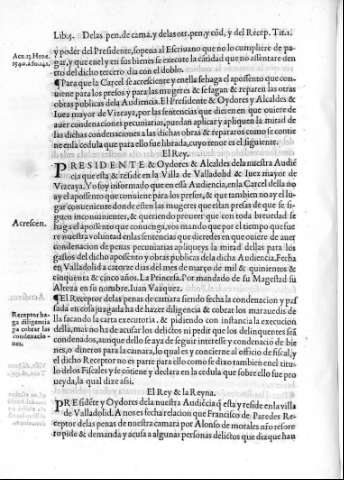 Lib.4. Delas pen. de cama. y delas otr. pen. y cōd, y del Recep. Tit.1.
y poder del Presidente, so pena al Escriuano que no lo cumpliere de pa-
gar, y que en el y en sus bienes se execute la cātidad que no assentare den
tro del dicho tercero dia con el doblo.
Acu. 13 Hene.
1540. à fo. 242.
¶Para que la Carcel se acresciente y en ella se haga el aposento que con-
uiene para los presos y para las mugeres & se fagan & reparen las otras
obras publicas dela Audiencia. El Presidente & Oydores y Alcaldes &
Iuez mayor de Vizcaya, por las sentencias que dieren en que ouiere de
auer condenaciones pecuniarias, puedan aplicar y apliquen la mitad de
las dichas condenaciones a las dichas obras & reparos como se contie
ne en la cedula que para ello fue librada, cuyo tenor es el siguiente.
El Rey.
PRESIDENTE & Oydores & Alcaldes dela nuestra Audiē
cia que esta & reside en la Villa de Valladolid & Iuez mayor de
Vizcaya. Yo soy informado que en essa Audiencia, en la Carcel della no
ay el aposento que conuiene para los presos, & que tambien no ay el lu-
gar conueniente donde esten las mugeres que estan presas de que se si-
Acrescen.
guen inconuinientes, & queriendo proueer que con toda breuedad se
faga el aposento que conuenga, vos mando que por el tiempo que fue
re nuestra voluntad en las sentencias que dieredes en que ouiere de auer
condenacion de penas pecuniarias apliqueys la mitad dellas para los
gastos del dicho aposento y obras publicas dela dicha Audiencia. Fecha
en Valladolid a catorze dias del mes de março de mil & quinientos &
cinquenta & cinco años. La Princesa. Por mandado de su Magestad su
Alteza en su nombre. Iuan Vazquez.
¶El Receptor delas penas de camara siendo fecha la condenacion y paſ
Receptor ha-
ga diligencia
pa cobrar las
condenacio-
nes.
sada en cosa juzgada ha de hazer diligencia & cobrar los marauedis de
lla sacando la carta executoria, & pidiendo con instancia la execucion
della, mas no ha de acusar los delictos ni pedir que los delinquentes seā
condenados, aunque dello se aya de seguir interesse y condenacīō de bie
nes, o dineros para la camara, lo qual es y concierne al officio de fiscal, y
el dicho Receptor no es parte para ello como se dixo tambien en el titu-
lo delos Fiscales y se cōtiene y declara en la cedula que sobre ello fue pro
ueyda, la qual dize assi.
El Rey & la Reyna.
PResidēte y Oydores dela nuestra Audiēcia q̄ esta y reside en la villa
de Valladolid. A nos es fecha relacion que Francisco de Paredes Re-
ceptor delas penas de nuestra camara por Alonso de morales nr̄o tesore
ro pide & demanda y acusa a algunas personas delictos que dize que han